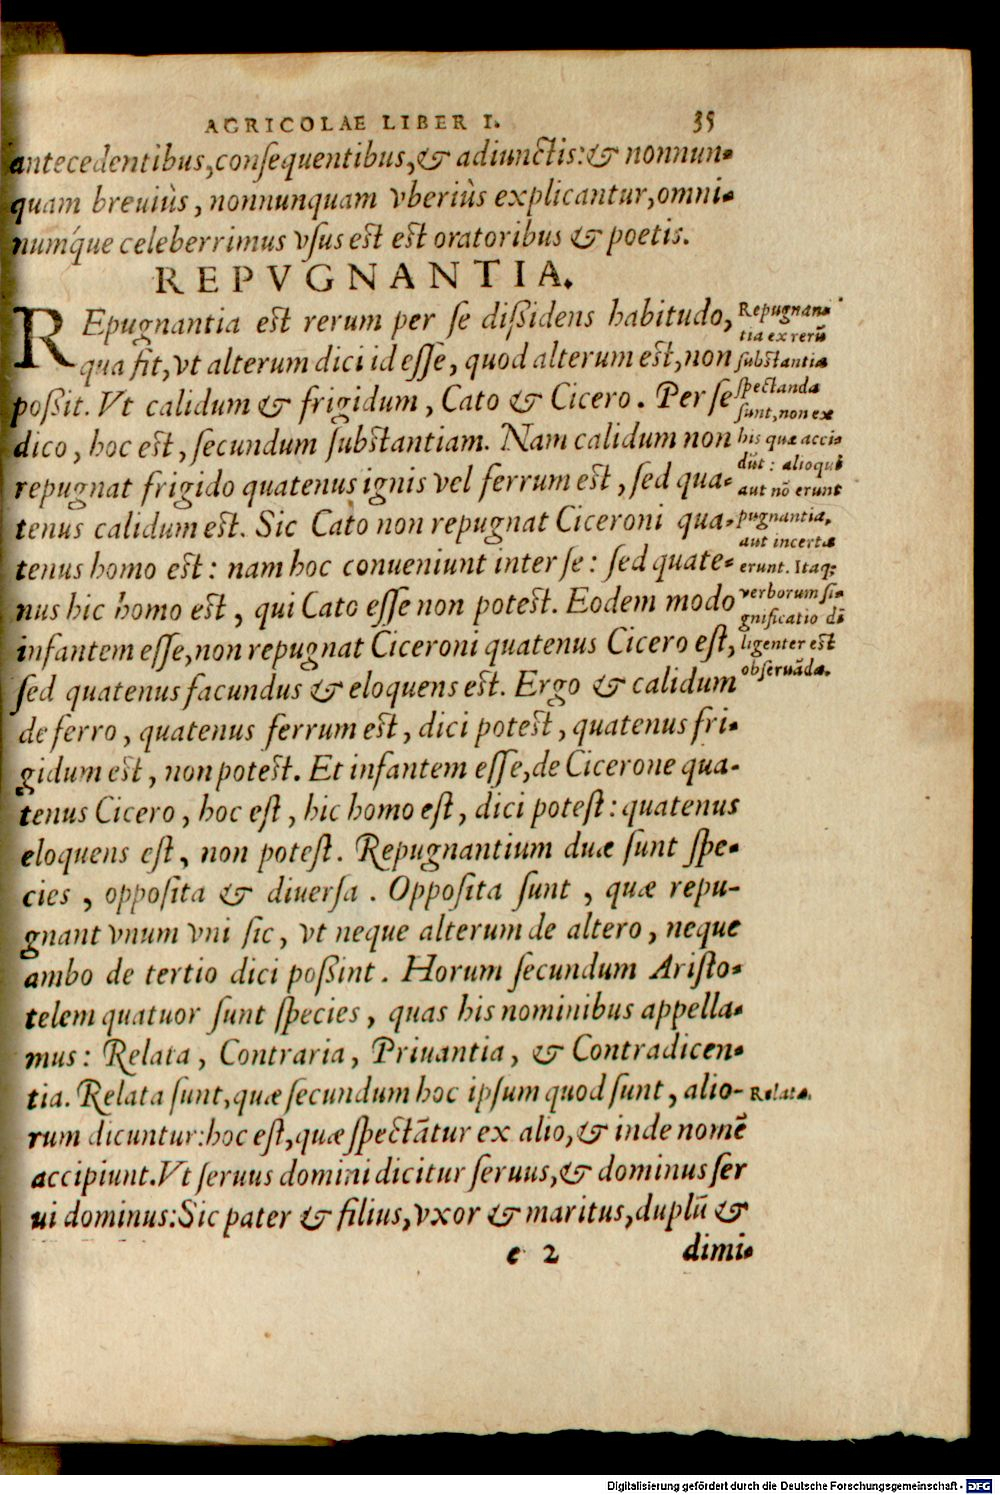 AGRICOLAE LIBER I. 35
antecedentibus, consequentibus, & adiunctis: & nonnun-
quam breuiùs, nonnunquam vberiùs explicantur, omni-
numq́ue celeberrimus vsus est est oratoribus & poetis.
REPVGNANTIA.
REpugnantia est rerum per se dißidens habitudo,
qua fit, vt alterum dici id esse, quod alterum est, non
poßit. Vt calidum & frigidum, Cato & Cicero. Per se
dico, hoc est, secundum substantiam. Nam calidum non
repugnat frigido quatenus ignis vel ferrum est, sed qua-
tenus calidum est. Sic Cato non repugnat Ciceroni qua-
tenus homo est: nam hoc conueniunt inter se: sed quate-
nus hic homo est, qui Cato esse non potest. Eodem modo
infantem esse, non repugnat Ciceroni quatenus Cicero est,
sed quatenus facundus & eloquens est. Ergo & calidum
de ferro, quatenus ferrum est, dici potest, quatenus fri-
gidum est, non potest. Et infantem esse, de Cicerone qua-
tenus Cicero, hoc est, hic homo est, dici potest: quatenus
eloquens est, non potest. Repugnantium duæ sunt spe-
cies, opposita & diuersa. Opposita sunt, quæ repu-
gnant vnum vni sic, vt neque alterum de altero, neque
ambo de tertio dici poßint. Horum secundum Aristo-
telem quatuor sunt species, quas his nominibus appella-
mus: Relata, Contraria, Priuantia, & Contradicen-
tia. Relata sunt, quæ secundum hoc ipsum quod sunt, alio-
rum dicuntur: hoc est, quæ spectātur ex alio, & inde nomē
accipiunt. Vt seruus domini dicitur seruus, & dominus ser
ui dominus: Sic pater & filius, vxor & maritus, duplū &
e 2 dimi-
Repugnan-
tia ex rerū
substantia
spectanda
sunt, non ex
his quæ acci-
dūt: alioqui
aut nō erunt
pugnantia,
aut incerta
erunt. Itaq;
verborum si-
gnificatio di-
ligenter est
obseruāda.
Relata.
Digitalisierung gefördert durch die Deutsche Forschungsgemeinschaft - DFG